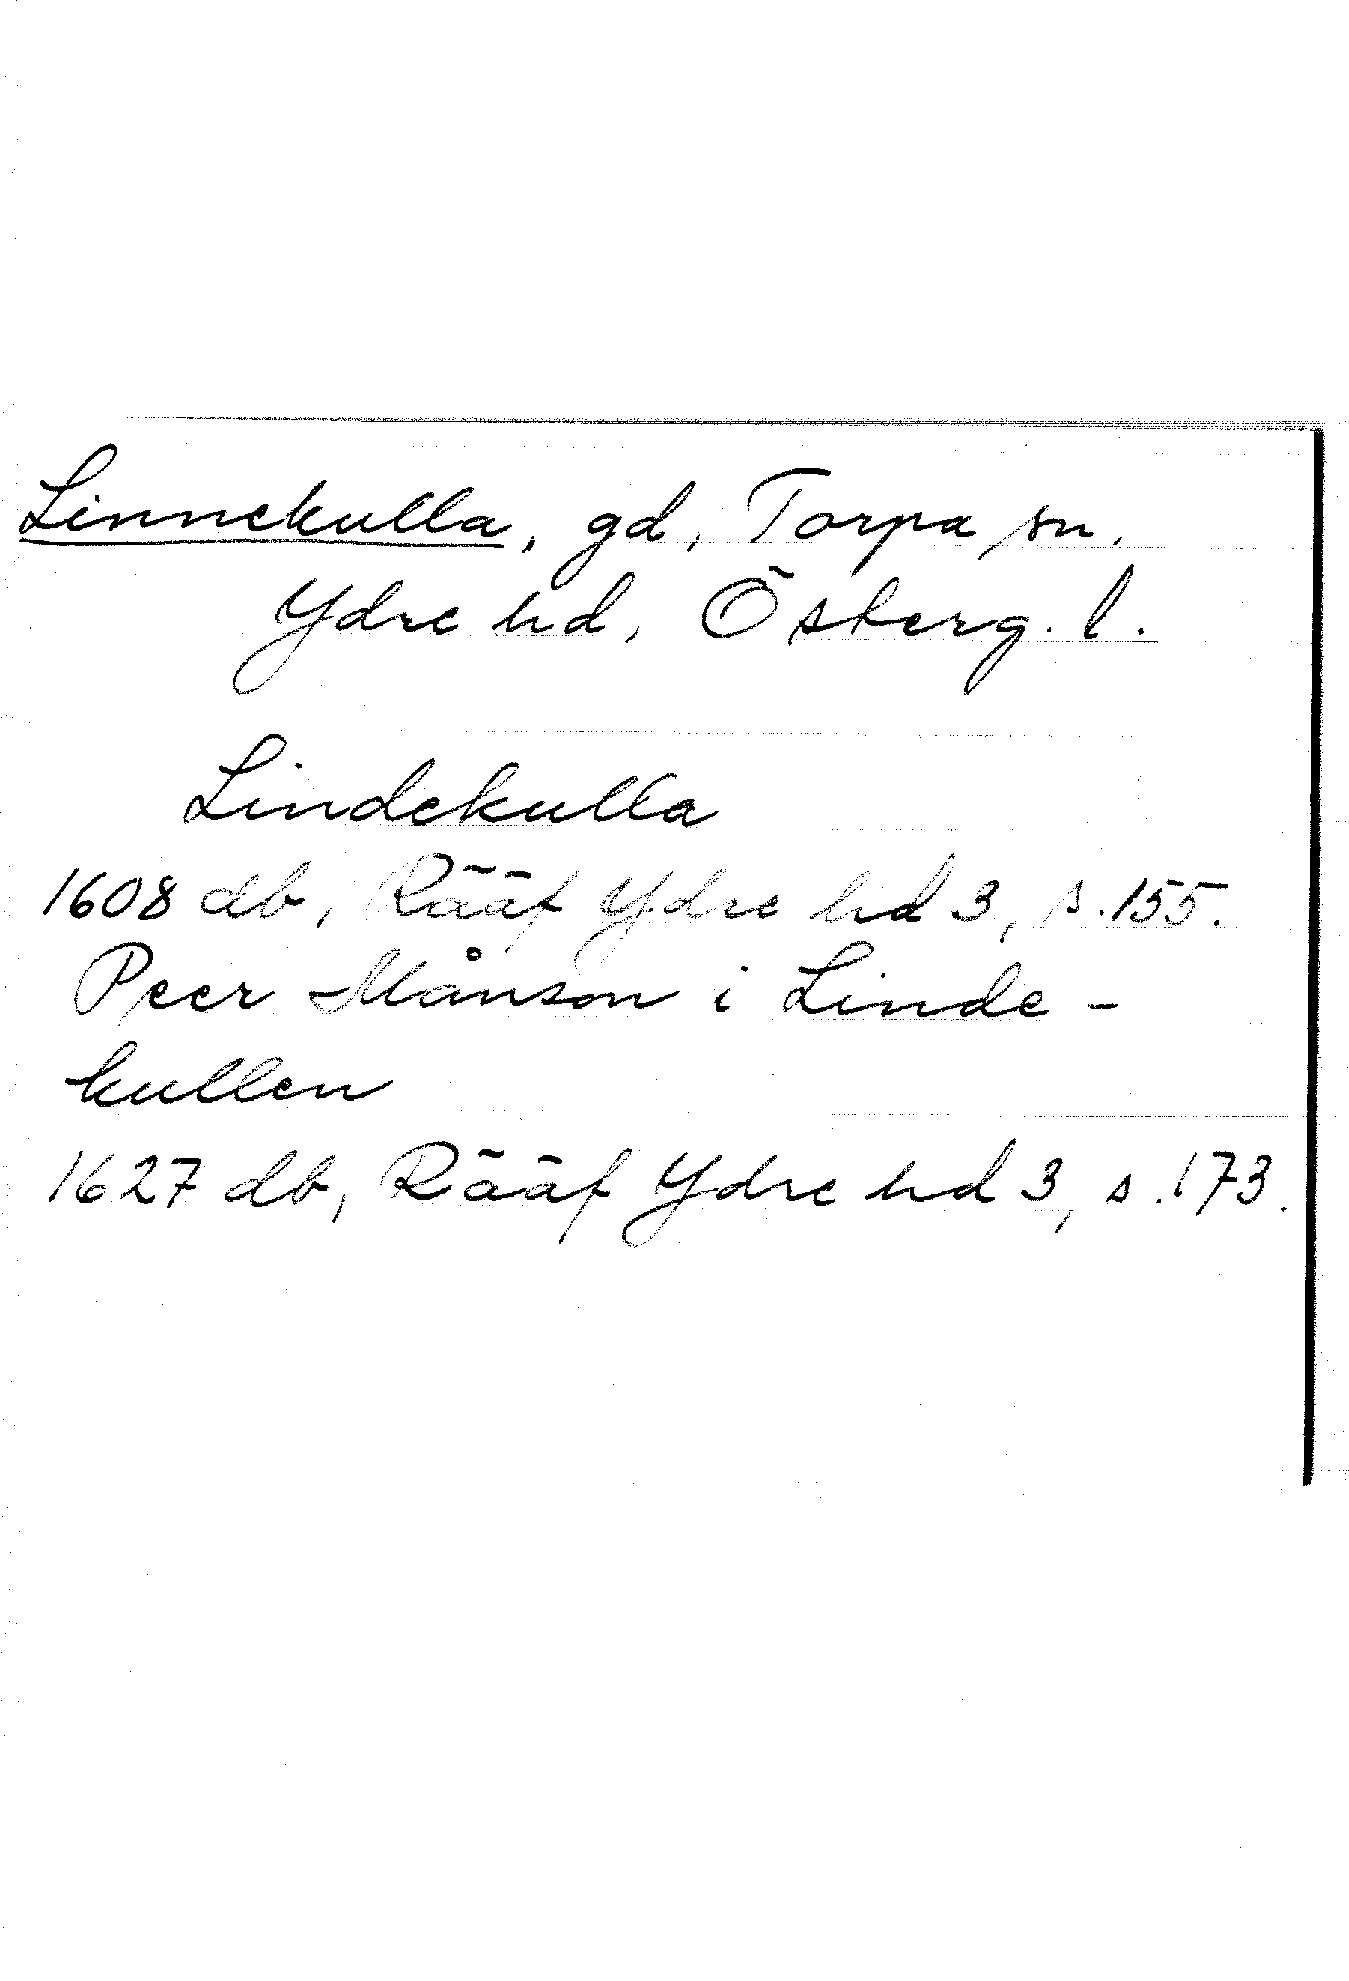 Linnekulla, gd, Torpa sn,
Ydre hd, Österg. l.
Lindekulla
1608 db, Rääf Ydre hd 3, s. 155.
Peer Månson i Linde-
kullen
1627 db, Rääf Ydre hd 3, s. 173.